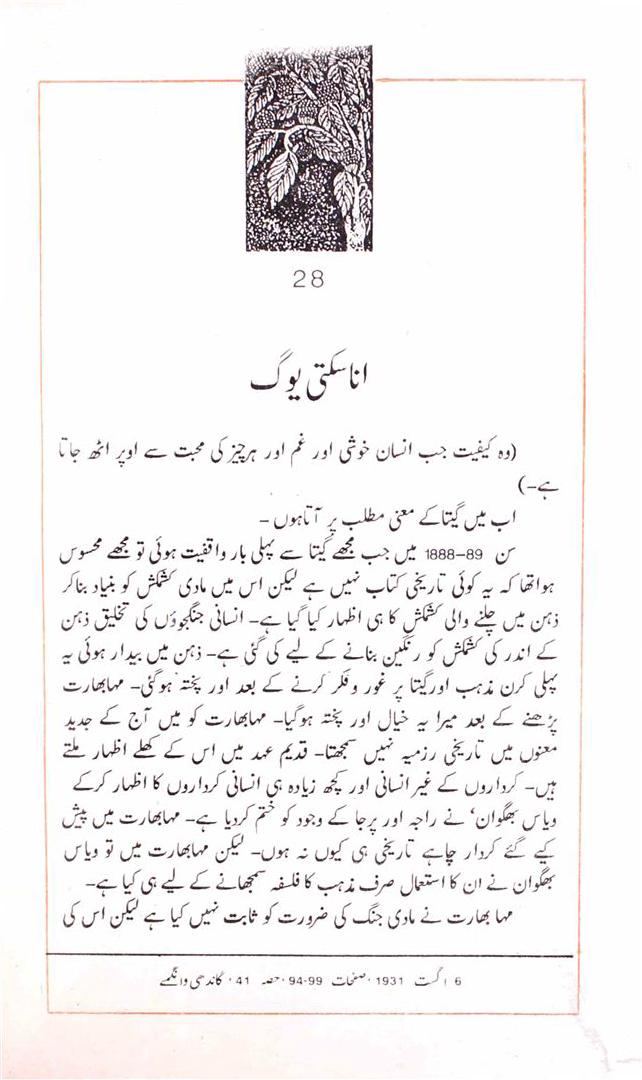 28
اناسکتی یوگ
(وہ کیفیت جب انسان خوشی اور غم اور ہرچیز کی محبت سے اوپر اٹھ جاتا
ہے-)
اب میں گیتا کے معنی مطلب پر آتا ہوں -
سن 89-1888 میں جب مجھے گیتا سے پہلی بار واقفیت ہوئی تو مجھے محسوس
ہوا تھا کہ یہ کوئی تاریخی کتاب نہیں ہے لیکن اس میں مادی کشمکش کو بنیاد بناکر
ذہن میں چلنے والی کشمکش کا ہی اظہار کیا گیا ہے- انسانی جنگجوؤں کی تخلیق ذہن
کے اندر کی کشمکش کو رنگین بنانے کے لیے کی گئی ہے- ذہن میں بیدار ہوئی یہ
پہلی کرن مذہب اور گیتا پر غور و فکر کرنے کے بعد اور پختہ ہوگئی- مہابھارت
پڑھنے کے بعد میرا یہ خیال اور پختہ ہوگیا- مہابھارت کو میں آج کے جدید
معنوں میں تاریخی رزمیہ نہیں سمجھتا- قدیم عہد میں اس کے کھلے اظہار ملتے
ہیں- کرداروں کے غیر انسانی اور کچھ زیادہ ہی انسانی کرداروں کا اظہار کرکے
ویاس بھگوان' نے راجہ اور پرجا کے وجود کو ختم کردیا ہے- مہابھارت میں پیش
کیے گئے کردار چاہے تاریخی ہی کیوں نہ ہوں- لیکن مہابھارت میں تو ویاس
بھگوان نے ان کا استعمال صرف مذہب کا فلسفہ سمجھانے کے لیے ہی کیا ہے-
مہا بھارت نے مادی جنگ کی ضرورت کو ثابت نہیں کیا ہے لیکن اس کی
6 اگست 1931، صفحات 99-94، حصہ 41، گاندھی وانگمے